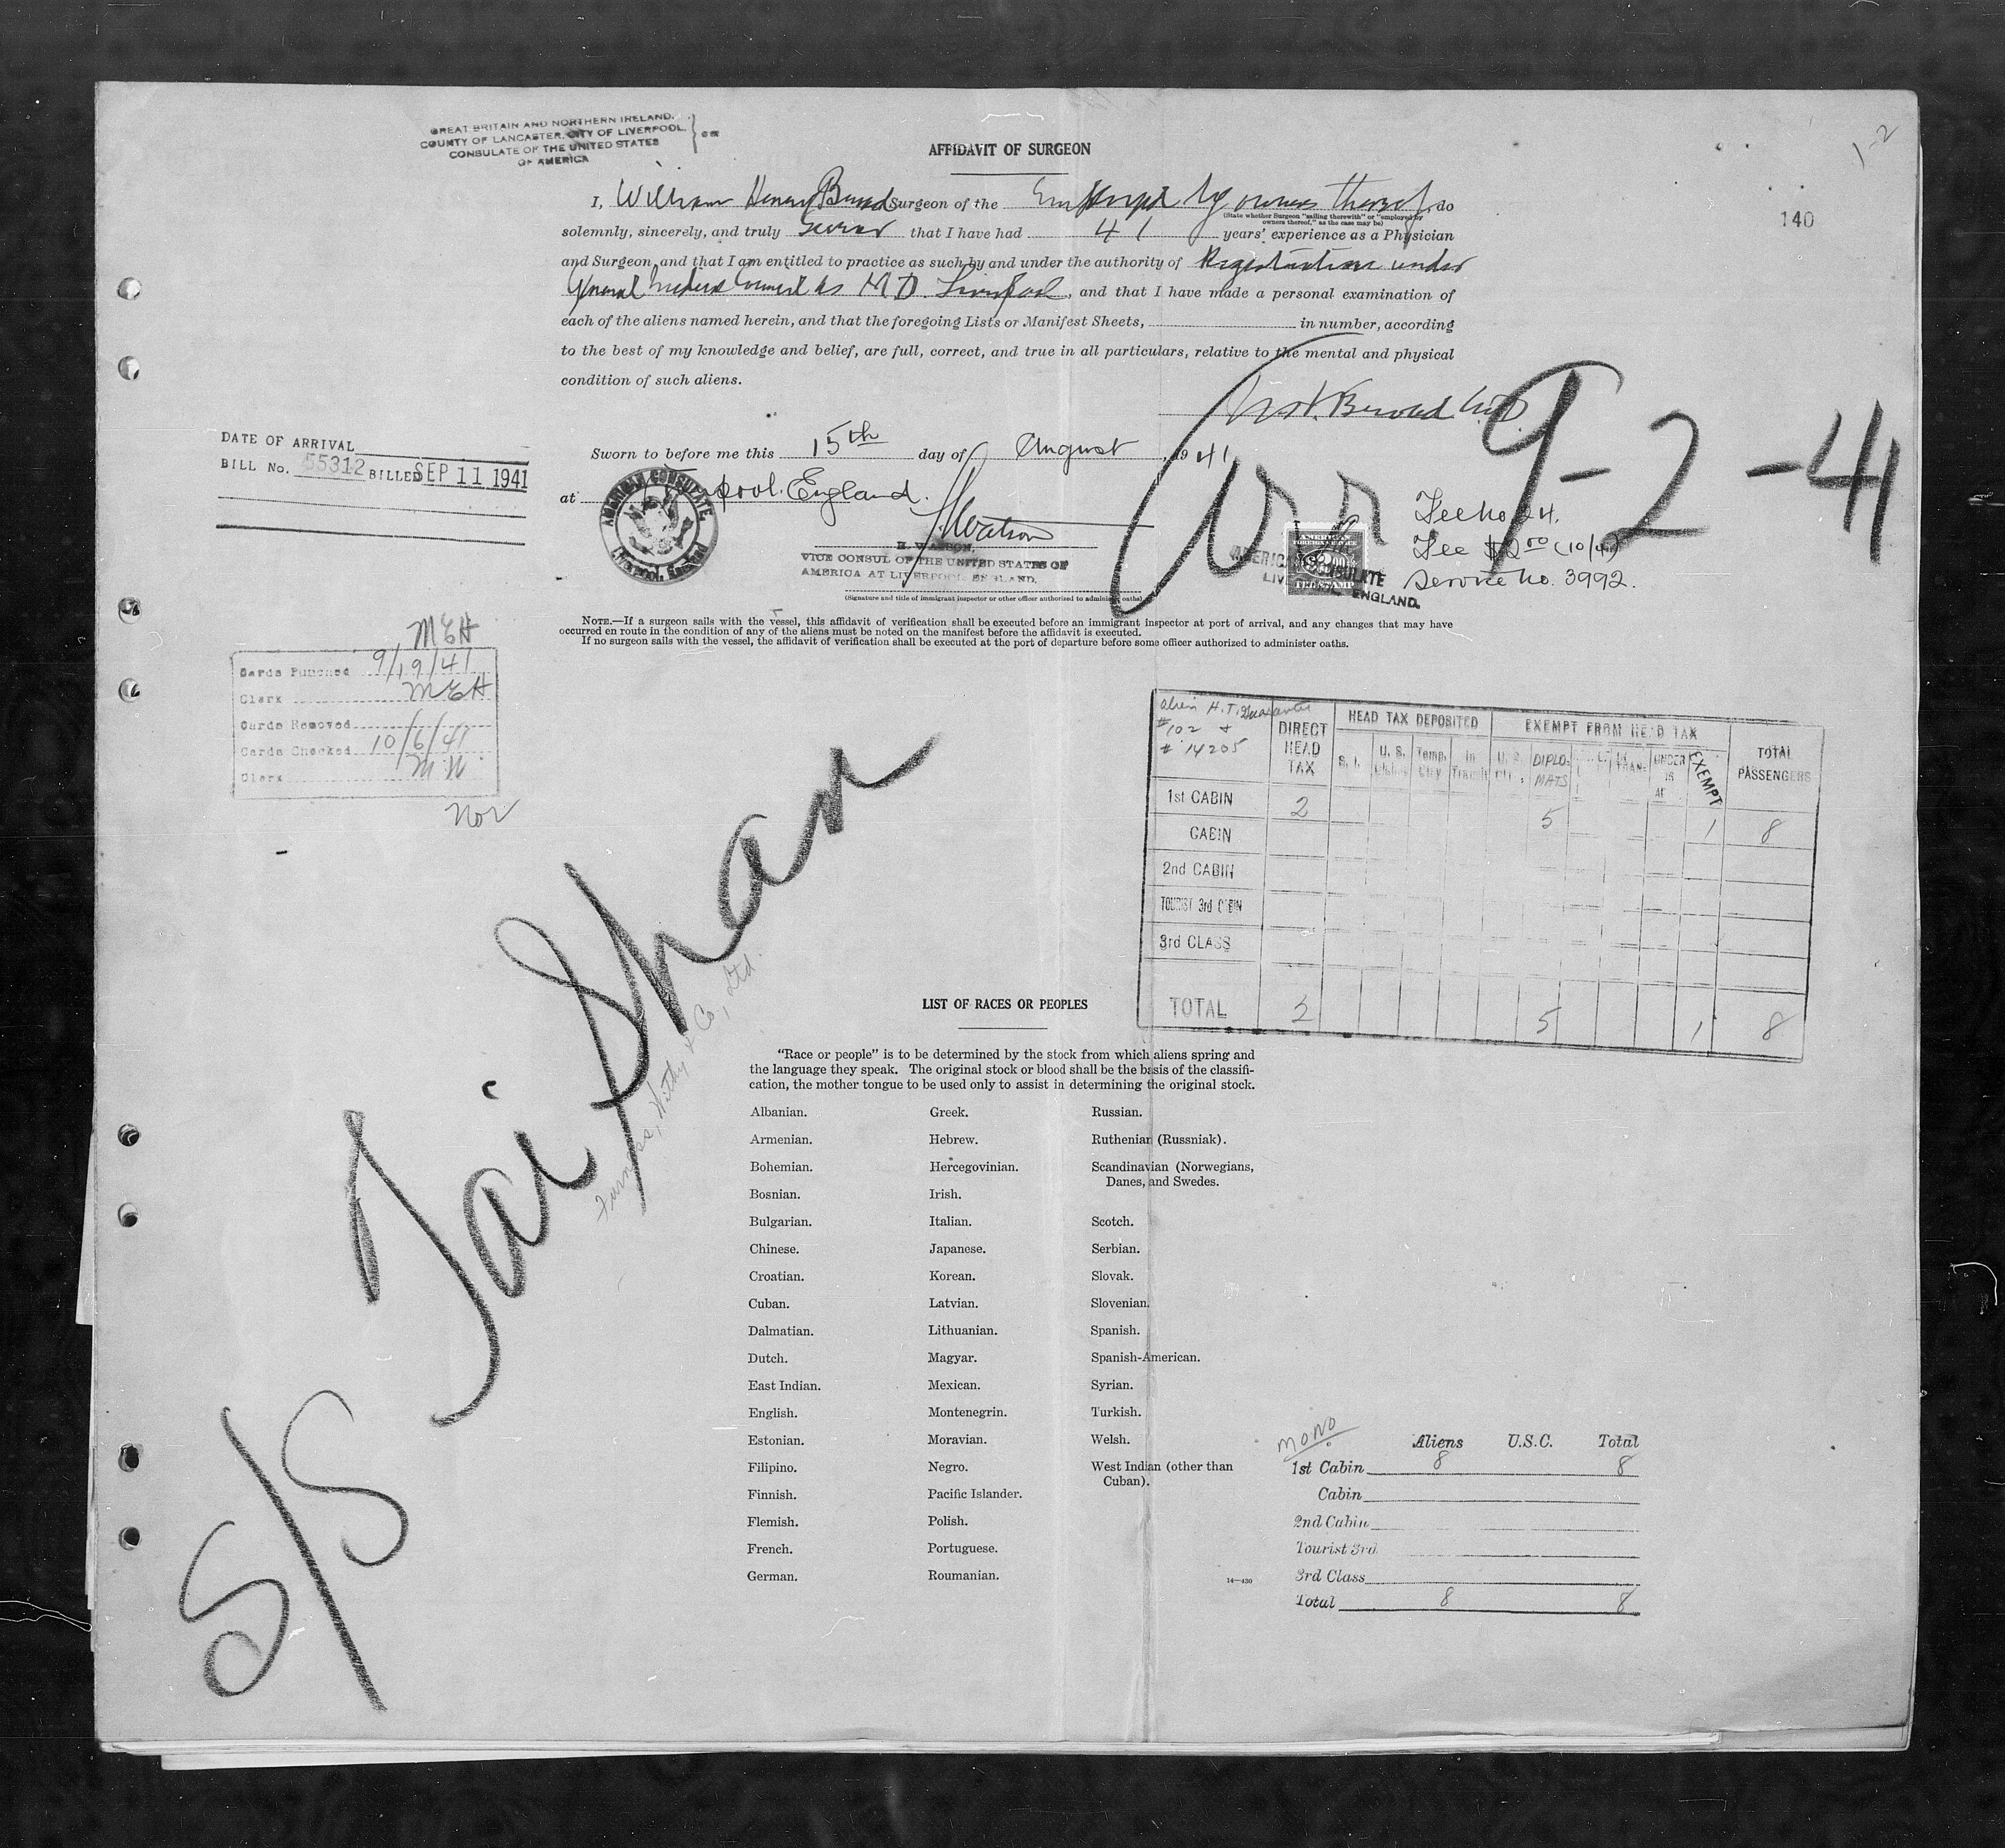 GREAT BRITAIN AND NORTHERN IRELAND.
COUNTY OF LANCASTER, CITY OF LIVERPOOL.
CONSULATE OF THE UNITED STATES
OF AMERICA
1-2
AFFIDAVIT OF SURGEON
140
I, William Henry Surgeon of the Employed by owners thereof, do
(State whether Surgeon "sailing therewith" or "employed by
owners thereof," as the case may be)
solemnly, sincerely, and truly swear that I have had 41 years' experience as a Physician
and Surgeon and that I am entitled to practice as such by and under the authority of Registration under
General Medical Council as M.D. Liverpool, and that I have made a personal examination of
each of the aliens named herein, and that the foregoing Lists or Manifest Sheets, in number, according
to the best of my knowledge and belief, are full, correct, and true in all particulars, relative to the mental and physical
condition of such aliens.
9-2-41
Sworn to before me this 15th day of August, 1941
at pool. England.
AMERICAN CONSULATE
Liverpool, England
H. Watson
H. WATSON,
VICE CONSUL OF THE UNITED STATES OF
AMERICA AT LIVERPOOL ENGLAND.
(Signature and title of immigrant inspector or other officer authorized to administer oaths)
AMERICAN CONSULATE
LIVERPOOL, ENGLAND.
Fee $2.00 (10/41)
Service No. 3992.
DATE OF ARRIVAL
BILL No. 55312 BILLED SEP 11 1941
NOTE.—If a surgeon sails with the vessel, this affidavit of verification shall be executed before an immigrant inspector at port of arrival, and any changes that may have
occurred en route in the condition of any of the aliens must be noted on the manifest before the affidavit is executed.
If no surgeon sails with the vessel, the affidavit of verification shall be executed at the port of departure before some officer authorized to administer oaths.
MEH
Cards Punched 9/19/41
Clerk MEH
Cards Removed
Cards Checked 10/6/41
Clerk
alien H.T. Guarantee
#102 +
#14205
DIRECT HEAD TAX
HEAD TAX DEPOSITED
EXEMPT FROM HEAD TAX
TOTAL PASSENGERS
S. I.
Temp. Stay
In Transit
DIPLO- MATS
TRANS
UNDER 16
EXEMPT
1st CABIN 2 5 1 8
CABIN
2nd CABIN
TOURIST 3rd CABIN
3rd CLASS
TOTAL 2 5 1 8
S/S Tai Shan
Furness, Withy & Co., Ltd.
LIST OF RACES OR PEOPLES
"Race or people" is to be determined by the stock from which aliens spring and
the language they speak. The original stock or blood shall be the basis of the classifi-
cation, the mother tongue to be used only to assist in determining the original stock.
Albanian.
Armenian.
Bohemian.
Bosnian.
Bulgarian.
Chinese.
Croatian.
Cuban.
Dalmatian.
Dutch.
East Indian.
English.
Estonian.
Filipino.
Finnish.
Flemish.
French.
German.
Greek.
Hebrew.
Hercegovinian.
Irish.
Italian.
Japanese.
Korean.
Latvian.
Lithuanian.
Magyar.
Mexican.
Montenegrin.
Moravian.
Negro.
Pacific Islander.
Polish.
Portuguese.
Roumanian.
Russian.
Ruthenian (Russniak).
Scandinavian (Norwegians,
Danes, and Swedes.
Scotch.
Serbian.
Slovak.
Slovenian.
Spanish.
Spanish-American.
Syrian.
Turkish.
Welsh.
West Indian (other than
Cuban).
14—430
MONO
Aliens U.S.C. Total
1st Cabin 8 8
Cabin
2nd Cabin
Tourist 3rd
3rd Class
Total 8 8